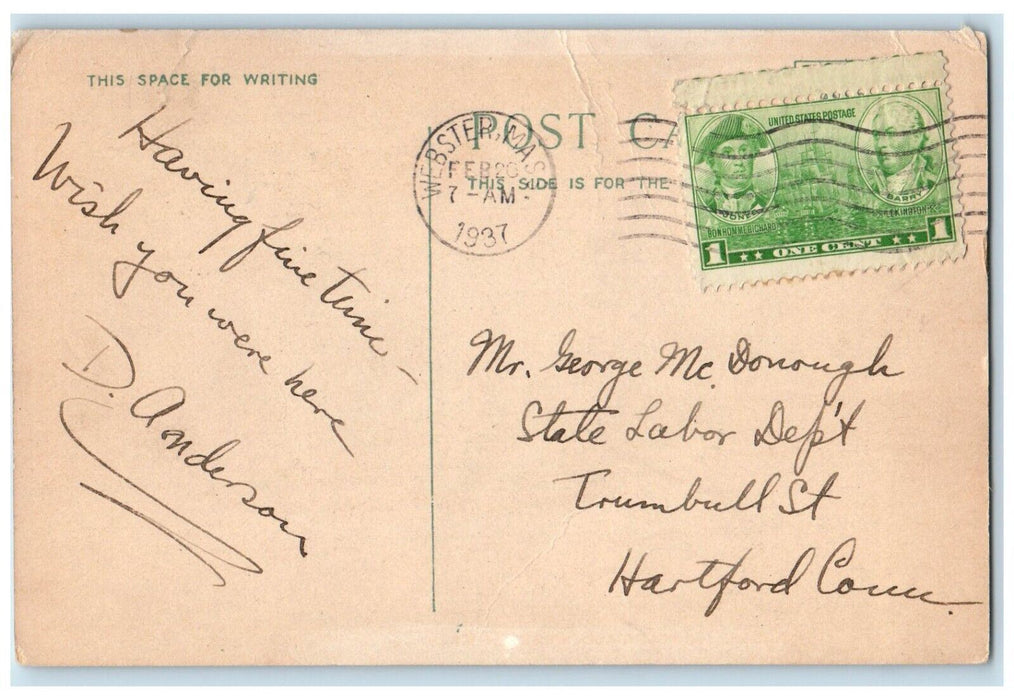 THIS SPACE FOR WRITING
POST CA
THIS SIDE IS FOR THE
WEBSTER, MAS
FEB 26
7-AM.
1937
UNITED STATES POSTAGE
JONES
BARRY
BONHOMME RICHARD
LEXINGTON
1 ONE CENT 1
Having fine time -
Wish you were here
D. Anderson
Mr. George Mc Donough
State Labor Dep't
Trumbull St
Hartford Conn.